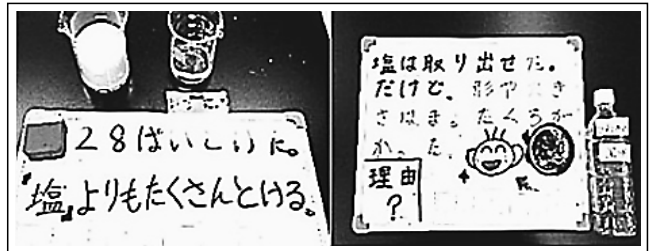 28
「塩」よりもたくさんとける。
塩は取り出せた。
だけど、形や大き
さはま。たくちが
か。た。
理由
?